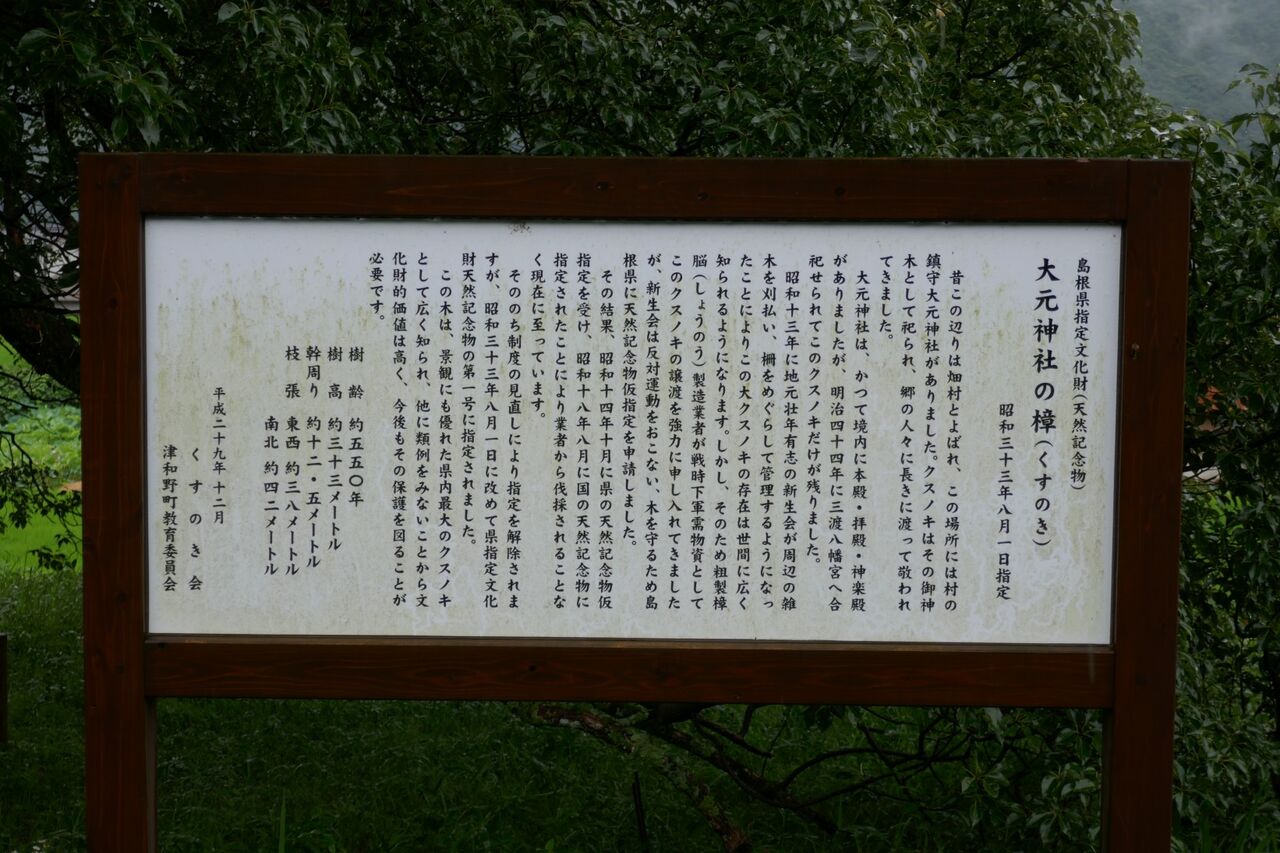 島根県指定文化財(天然記念物)
大元神社の樟(くすのき)
昭和三十三年八月一日指定
昔この辺りは畑村とよばれ、この場所には村の
鎮守大元神社がありました。クスノキはその御神
木として祀られ、郷の人々に長きに渡って敬われ
てきました。
大元神社は、かつて境内に本殿・拝殿・神楽殿
がありましたが、明治四十四年に三渡八幡宮へ合
祀せられてこのクスノキだけが残りました。
昭和十三年に地元壮年有志の新生会が周辺の雑
木を刈払い、柵をめぐらして管理するようになっ
たことによりこの大クスノキの存在は世間に広く
知られるようになります。しかし、そのため粗製樟
脳(しょうのう)製造業者が戦時下軍需物資として
このクスノキの譲渡を強力に申し入れてきました
が、新生会は反対運動をおこない、木を守るため島
根県に天然記念物仮指定を申請しました。
その結果、昭和十四年十月に県の天然記念物仮
指定を受け、昭和十八年八月に国の天然記念物に
指定されたことにより業者から伐採されることな
く現在に至っています。
そののち制度の見直しにより指定を解除されま
すが、昭和三十三年八月一日に改めて県指定文化
財天然記念物の第一号に指定されました。
この木は、景観にも優れた県内最大のクスノキ
として広く知られ、他に類例をみないことから文
化財的価値は高く、今後もその保護を図ることが
必要です。
樹 齢 約五五〇年
樹 高 約三十三メートル
幹周り 約十二・五メートル
枝 張 東西 約三八メートル
南北 約四二メートル
平成二十九年十二月
くすのき会
津和野町教育委員会